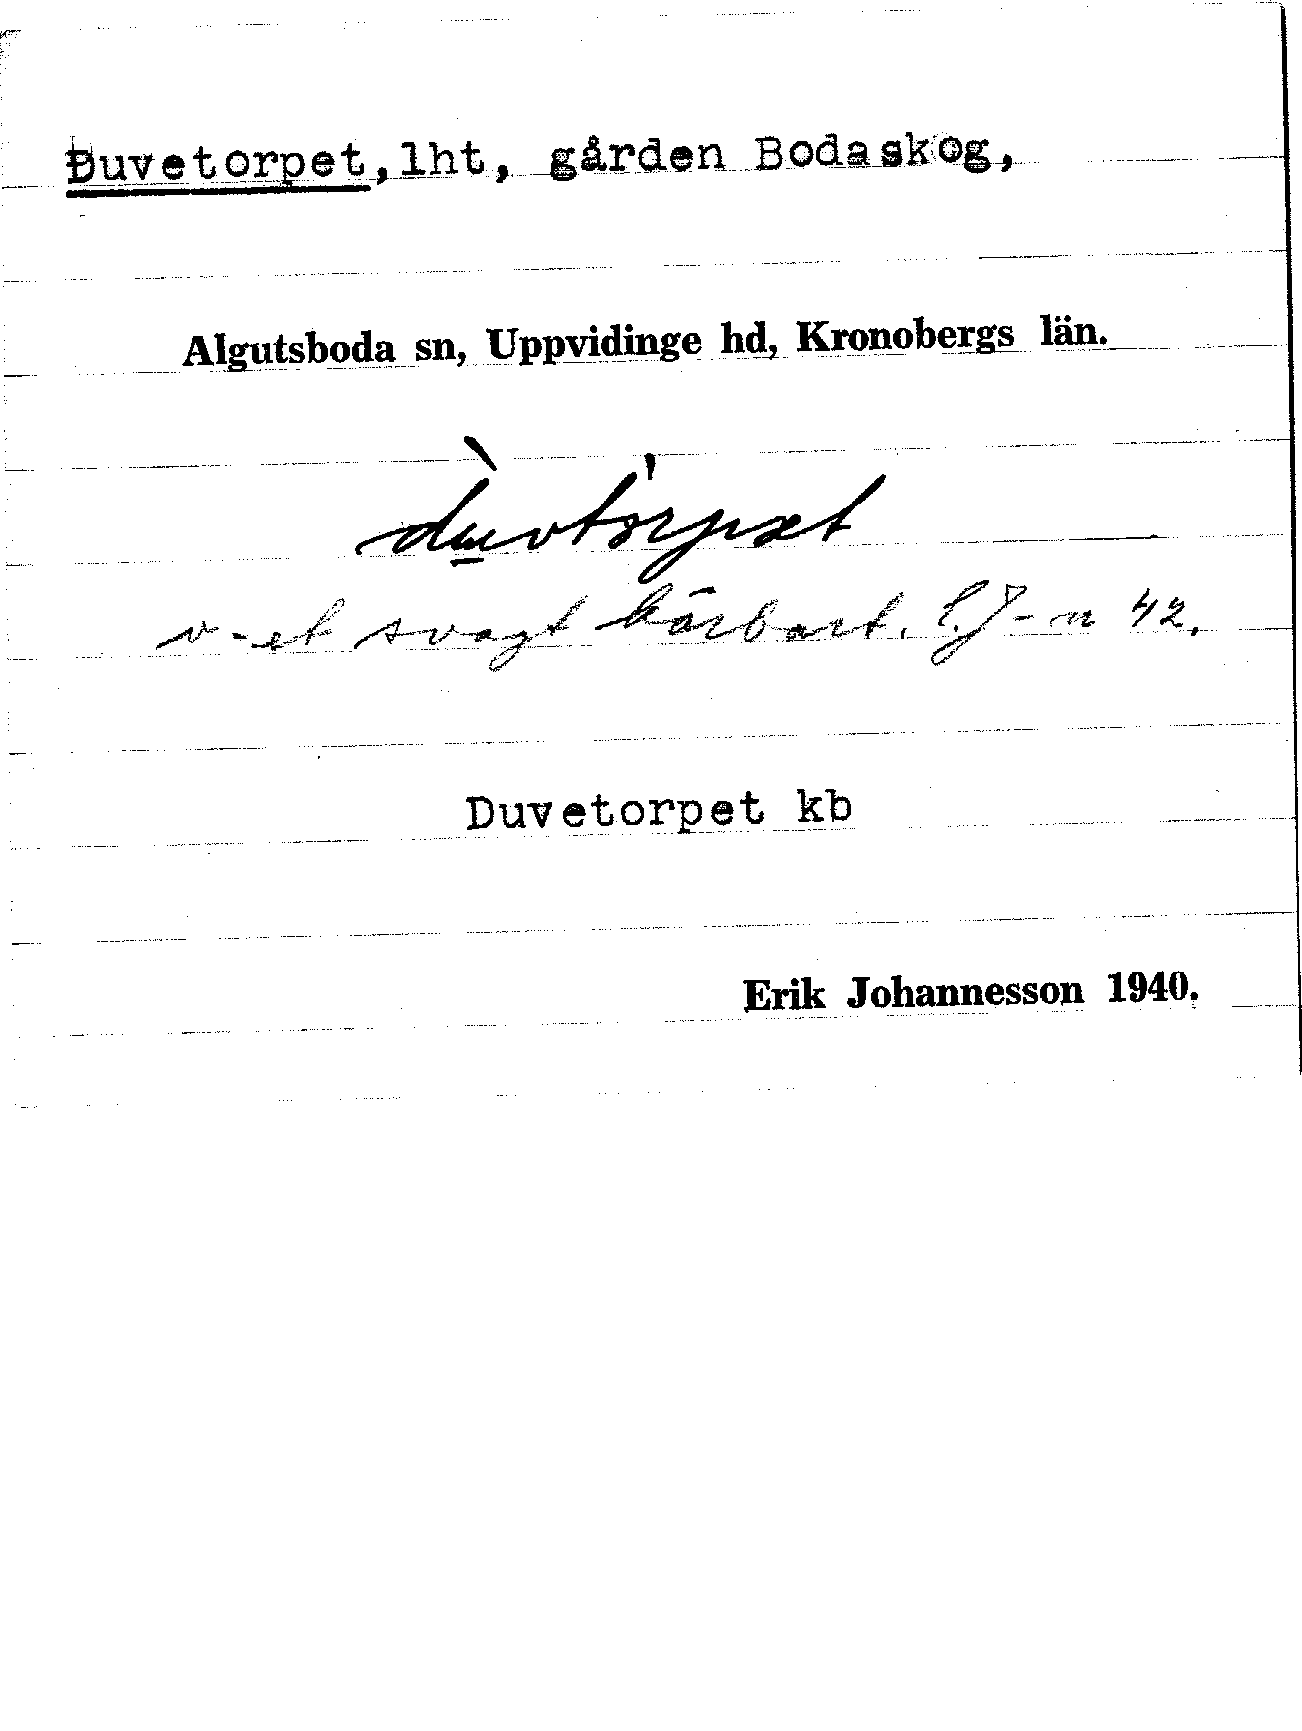 Duvetorpet, lht, gården Bodaskog,
Algutsboda sn, Uppvidinge hd, Kronobergs län.
v-et svagt hörbart. E.J-n 42.
Duvetorpet kb
Erik Johannesson 1940.